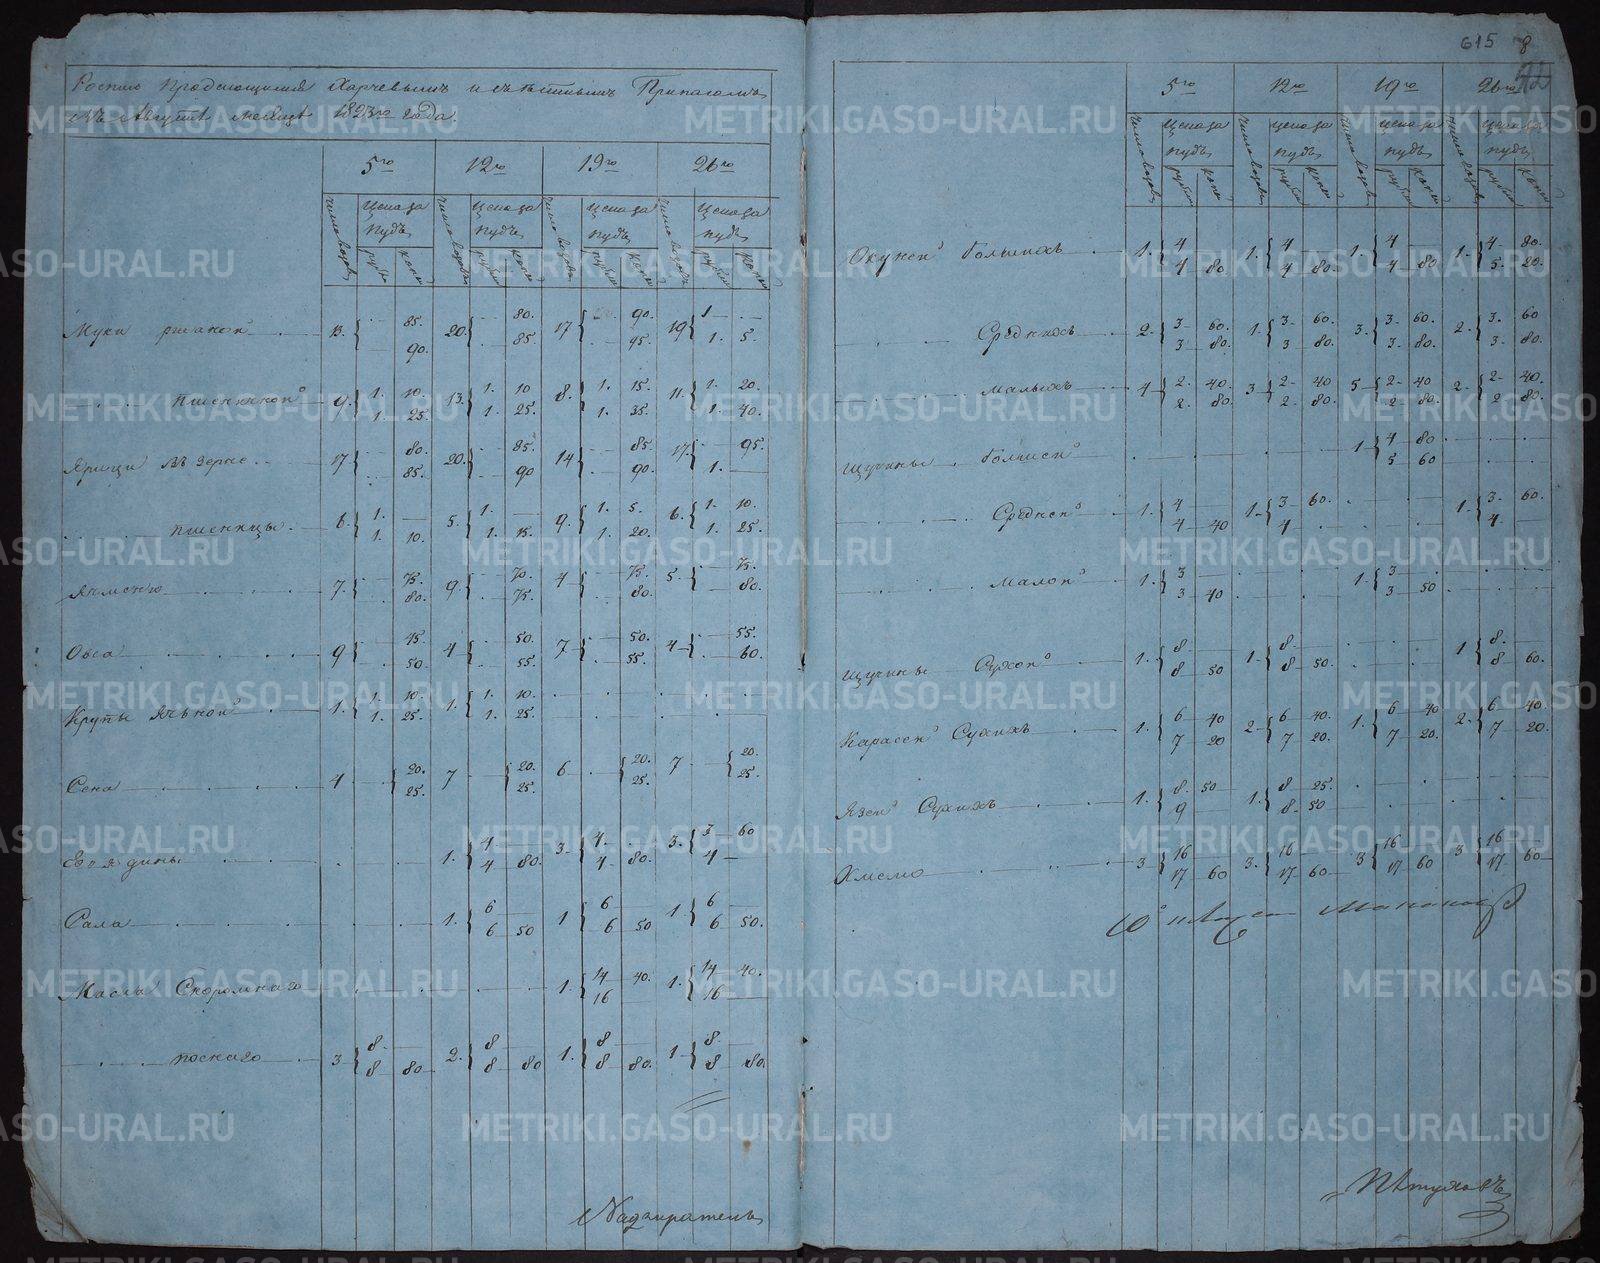 615 8
Роспись Продающимся Харчевымъ и съѣстнымъ Припасамъ
въ Августѣ месяцѣ 1823го года.
5го 12го 19го 26го
число возовъ цена за пудъ рубли копѣ число возовъ цена за пудъ рубли копѣ число возовъ цена за пудъ рубли копѣ число возовъ цена за пудъ рубли копѣ
Муки ржаной 13. 85. 20. 80. 17 90. 19 1
90. 85. 95. 1. 5.
пшеничной 9. 1. 10. 13. 1. 10 8. 1. 15. 11. 1. 20.
1. 25. 1. 25. 1. 35. 1. 40.
Ярицы въ зерне 17 80. 20. 85. 14 85. 17. 95.
85. 90 90. 1.
пшеницы 6. 1. 5. 1. 9. 1. 5. 6. 1. 10.
1. 10. 1. 15. 1. 20. 1. 25.
Ячменю 7. 75. 9. 70. 4 75. 5. 75.
80. 75. 80. 80.
Овса 9 45. 4 50. 7 50. 4 55.
50. 55. 55. 60.
Крупы Ячьной 1. 1. 10. 1. 1. 10.
1. 25. 1. 25.
Сена 4 20. 7 20. 6 20. 7 20.
25. 25. 25. 25.
Говядины 1. 4 3. 4 3. 3 60
4 80. 4 80. 4
Сала 1. 6 1 6 1 6
6 50 6 50 6 50.
Масла Скоромнаго 1. 14 40. 1. 14 40.
16 16
поснаго 3 8. 2. 8 1. 8 1 8.
8 80 8 80 8 80. 8 80.
Надзиратель
5го 12го 19го 26го
число возовъ цена за пудъ рубли копѣ число возовъ цена за пудъ рубли копѣ число возовъ цена за пудъ рубли копѣ число возовъ цена за пудъ рубли копѣ
Окуней Болшихъ 1. 4 1. 4 1. 4 1. 4. 80.
4 80 4 80 4 80 5. 20.
Среднихъ 2. 3. 60. 1. 3. 60. 3. 3. 60. 2. 3. 60
3 80. 3 80. 3 80. 3 80.
малыхъ 4 2. 40. 3 2 40 5 2 40 2. 2 40.
2. 80. 2 80. 2 80. 2 80.
щучины Болшей 1 4 80.
5 60
Средней 1. 4 1. 3 60. 1. 3. 60.
4 40 4 4.
малой 1. 3 1. 3
3 40 3 50
щучины Сухой 1. 8. 1. 8. 1 8.
8 50 8 50. 8 60.
Карасей Сухихъ 1. 6 40 2. 6 40. 1. 6 40 2. 6 40.
7 20 7 20. 7 20. 7 20.
Язей Сухихъ 1. 8. 50 1. 8 25.
9 8. 50
Хмелю 3 16 3. 16 3 16 3 16
17 60 17 60 17 60 17 60
Пѣтуховъ
METRIKI.GASO-URAL.RU